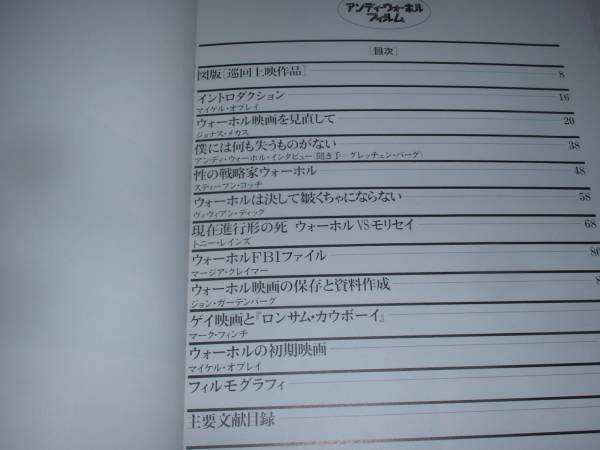 アンディ・ウォーホル
フィルム
[目次]
図版[巡回上映作品] 8
イントロダクション 16
マイケル・オプレイ
ウォーホル映画を見直して 20
ジョナス・メカス
僕には何も失うものがない 38
アンディ・ウォーホル・インタビュー(聞き手=グレッチェン・バーグ)
性の戦略家ウォーホル 48
スティーブン・コッチ
ウォーホルは決して皺くちゃにならない 58
ヴィヴィアン・ディック
現在進行形の死 ウォーホルVSモリセイ 68
トニー・レインズ
ウォーホルFBIファイル
マージア・クレイマー
ウォーホル映画の保存と資料作成
ジョン・ガーテンバーグ
ゲイ映画と『ロンサム・カウボーイ』
マーク・フィンチ
ウォーホルの初期映画
マイケル・オプレイ
フィルモグラフィ
主要文献目録